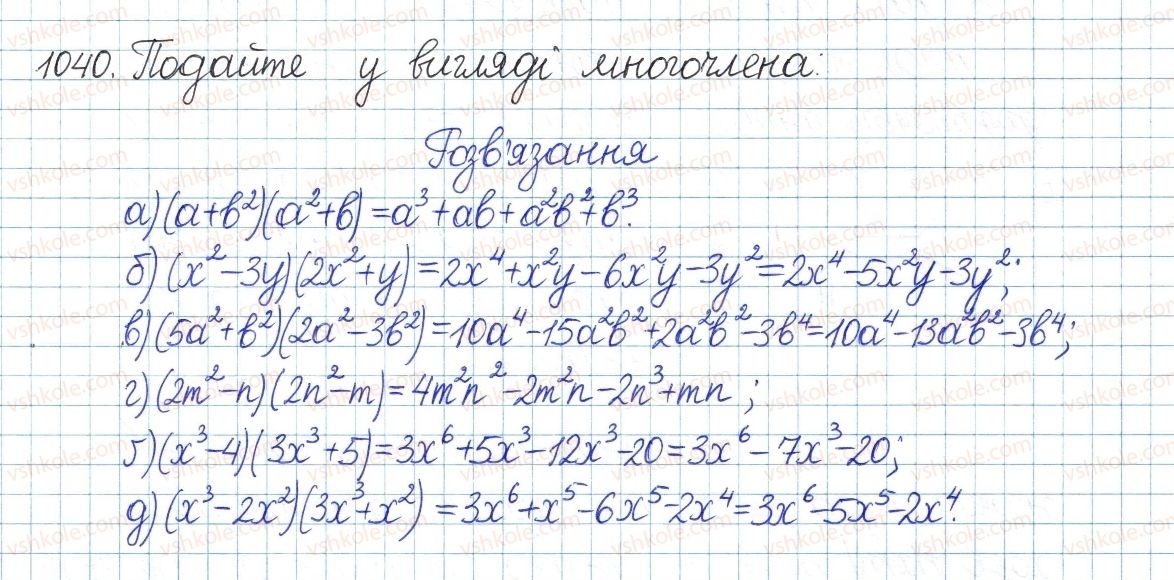 1040. Подайте у вигляді многочлена:
Розв'язання
а) (a+b²)(a²+b) = a³+ab+a²b²+b³.
б) (x²-3y)(2x²+y) = 2x⁴+x²y-6x²y-3y² = 2x⁴-5x²y-3y²;
в) (5a²+b²)(2a²-3b²) = 10a⁴-15a²b²+2a²b²-3b⁴ = 10a⁴-13a²b²-3b⁴;
г) (2m²-n)(2n²-m) = 4m²n²-2m²n-2n³+mn;
ґ) (x³-4)(3x³+5) = 3x⁶+5x³-12x³-20 = 3x⁶-7x³-20;
д) (x³-2x²)(3x³+x²) = 3x⁶+x⁵-6x⁵-2x⁴ = 3x⁶-5x⁵-2x⁴.